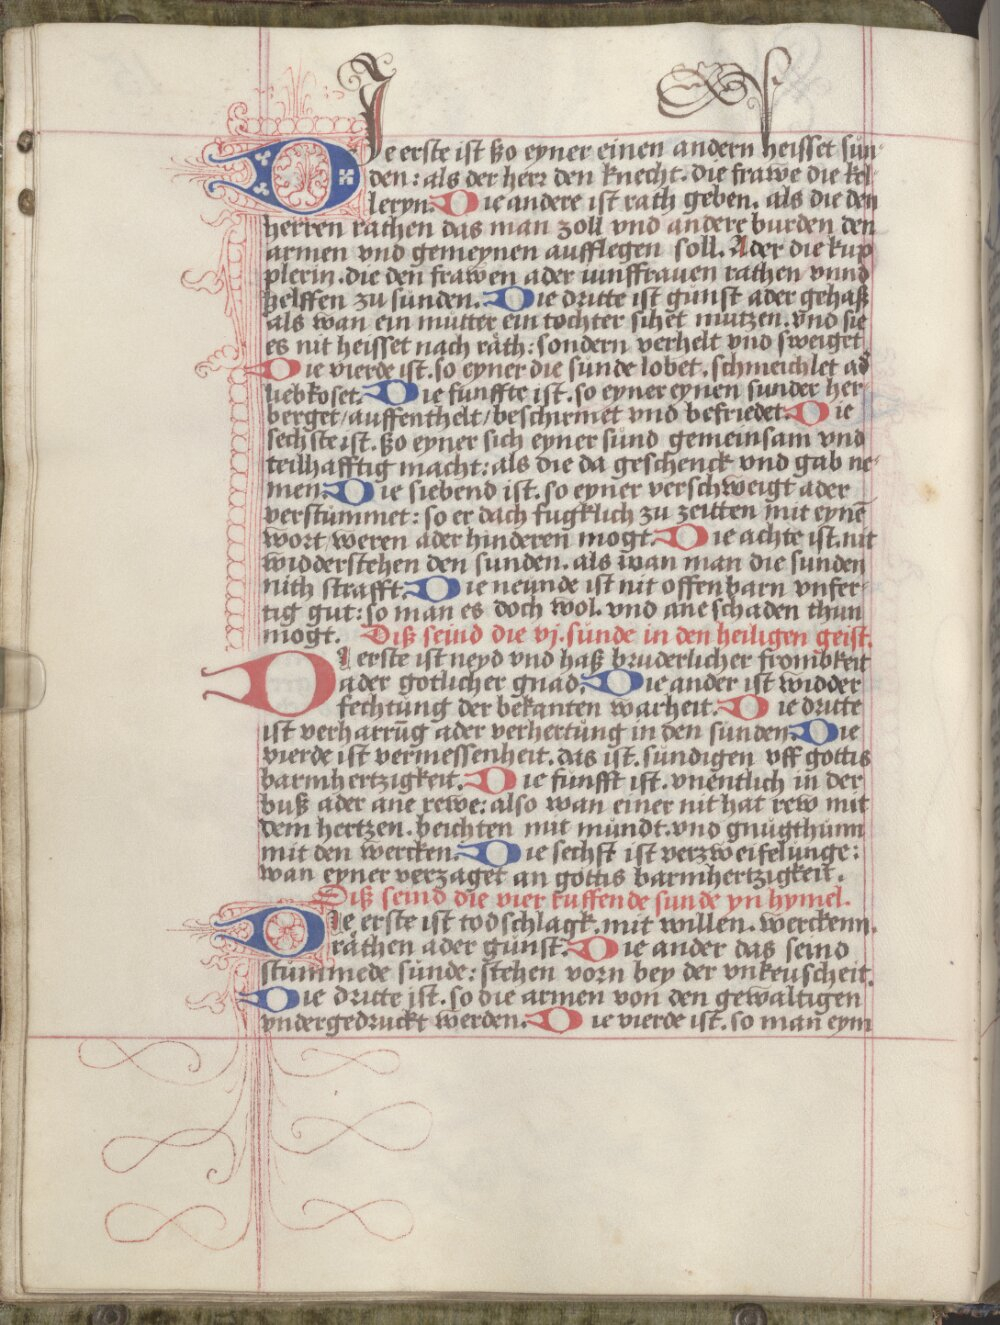 DJe erste ist ßo eyner einen andern heisset sun-
den: als der herr den knecht. die frawe die kel-
leryn. Die andere ist rath geben. als die den
herren rathen das man zoll vnd andere burden den
armen vnd gemeynen aufflegen soll. Ader die kup
plerin. die den frawen ader iunffrauen rathen vnnd
helffen zu sunden. Die dritte ist gunst ader gehaß
als wan ein mutter ein tochter sihet mutzen. vnd sie
es nit heisset nach rath: sondern verhelt vnd sweiget
Die vierde ist. so eyner die sunde lobet. schmeichlet ad
liebkoset. Die funffte ist. so eyner eynen sunder her-
berget/auffenthelt/beschirmet vnd befriedet. Die
sechste ist. ßo eyner sich eyner sund gemeinsam vnd
teilhafftig macht: als die da geschenck vnd gab ne-
men. Die siebend ist. so eyner verschweigt ader
verstummet: so er dach fugklich zu zeitten mit eynē
wort/weren ader hinderen mogt. Die achte ist. nit
widderstehen den sunden. als wan man die sunden
nith strafft. Die neunde ist nit offenbarn vnfer-
tig gut: so man es doch wol. vnd ane schaden thun
mogt. Diß seind die vj. sunde in den heiligen geist.
DJ erste ist neyd vnd haß bruderlicher frombkeit
ader gotlicher gnad. Die ander ist widder
fechtung der bekanten warheit. Die dritte
ist verharrūg ader verhertung in den sunden. Die
vierde ist vermessenheit. das ist. sundigen vff gottis
barmhertzigkeit. Die funfft ist. vnentlich in der
buß ader ane rewe: also wan einer nit hat rew mit
dem hertzen. beichten mit mundt. vnd gnugthunn
mit den wercken. Die sechst ist verzweifelunge:
wan eyner verzaget an gottis barmhertzigkeit.
Diß seind die vier ruffende sunde yn hymel.
DJe erste ist todschlagk. mit willen. werckenn.
räthen ader gunst. Die ander das seind
stummede sunde: stehen vorn bey der vnkeuscheit.
Die dritte jst. so die armen von den gewaltigen
vndergedruckt werden. Die vierde ist. so man eym